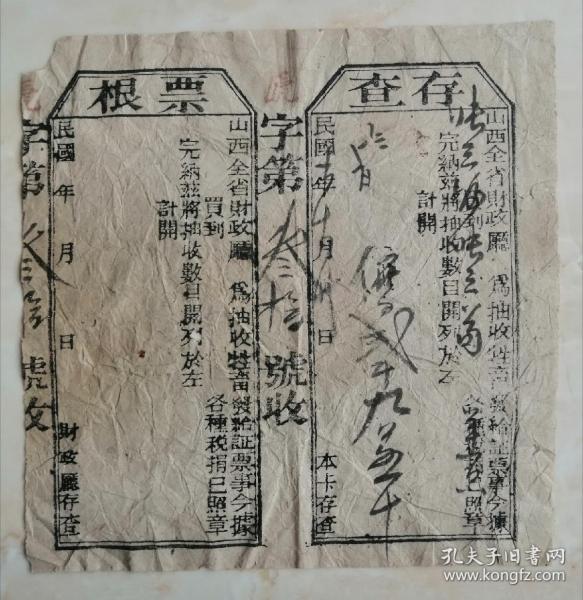 存查
山西全省財政廳 為抽收牲畜發給証票事今據
到
完納茲將抽收數目開列於左
各種税捐已照章
計開
民國 年 十月 日
本卡存查
字第 叁拾 號收
票根
山西全省財政廳 為抽收牲畜發給証票事今據
買到
完納茲將抽收數目開列於左
各種税捐已照章
計開
民國 年 月 日
財政廳存查
字第 號收
孔夫子旧书网
www.kongfz.com